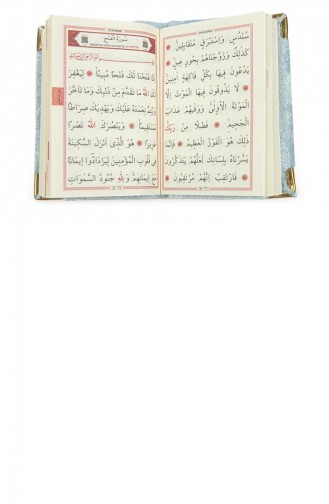 سُنْدُسٍ وَاِسْتَبْرَقٍ مُتَقَابِلِينَ
كَذٰلِكَ وَزَوَّجْنَاهُمْ بِحُورٍ عِينٍ
يَدْعُونَ فِيهَا بِكُلِّ فَاكِهَةٍ اٰمِنِينَ
لَا يَذُوقُونَ فِيهَا الْمَوْتَ اِلَّا
الْمَوْتَةَ الْاُولٰى وَوَقٰيهُمْ عَذَابَ
الْجَحِيمِ فَضْلًا مِنْ رَبِّكَ
ذٰلِكَ هُوَ الْفَوْزُ الْعَظِيمُ فَاِنَّمَا
يَسَّرْنَاهُ بِلِسَانِكَ لَعَلَّهُمْ يَتَذَكَّرُونَ
فَارْتَقِبْ اِنَّهُمْ مُرْتَقِبُونَ
سُورَةُ الْفَتْحِ
اِنَّا فَتَحْنَا لَكَ فَتْحًا مُبِينًا لِيَغْفِرَ
لَكَ اللّٰهُ مَا تَقَدَّمَ مِنْ ذَنْبِكَ وَمَا تَاَخَّرَ
وَيُتِمَّ نِعْمَتَهُ عَلَيْكَ وَيَهْدِيَكَ صِرَاطًا
مُسْتَقِيمًا وَيَنْصُرَكَ اللّٰهُ نَصْرًا
عَزِيزًا هُوَ الَّذِى اَنْزَلَ السَّكِينَةَ
فِى قُلُوبِ الْمُؤْمِنِينَ لِيَزْدَادُوا اِيمَانًا
مَعَ اِيمَانِهِمْ وَلِلّٰهِ جُنُودُ السَّمٰوَاتِ